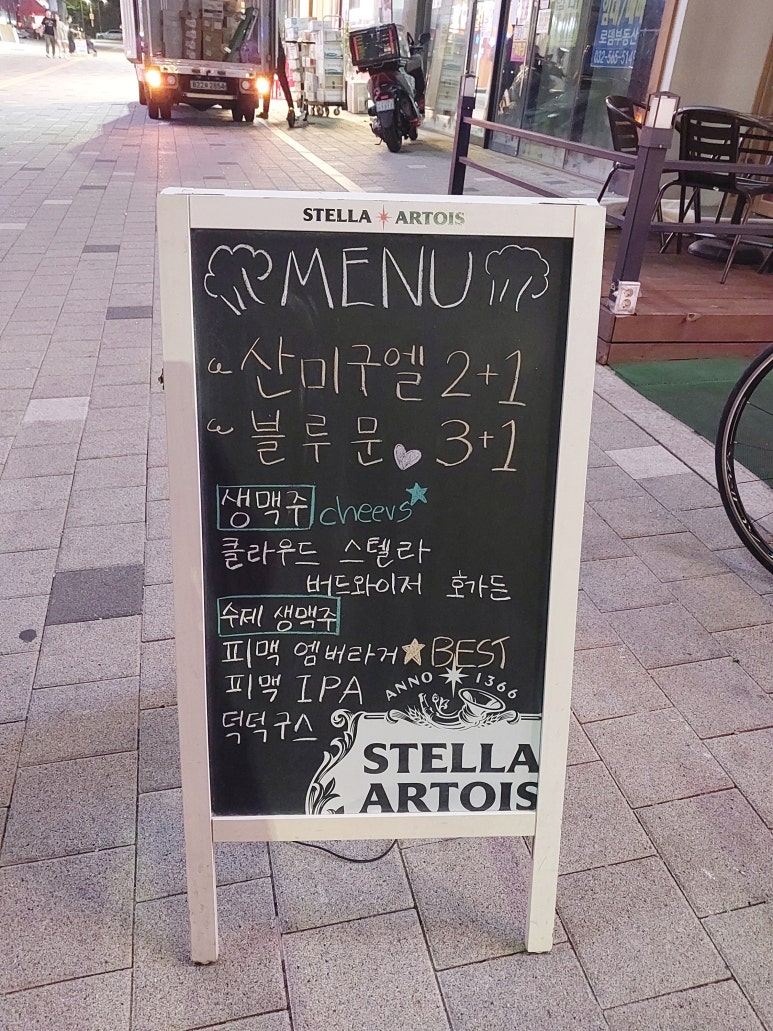 STELLA ARTOIS
MENU
산미구엘 2+1
블루문 3+1
생맥주 cheers
클라우드 스텔라
버드와이저 호가든
수제 생맥주
피맥 엠버라거 BEST
피맥 IPA
덕덕구스
ANNO 1366
STELLA
ARTOIS